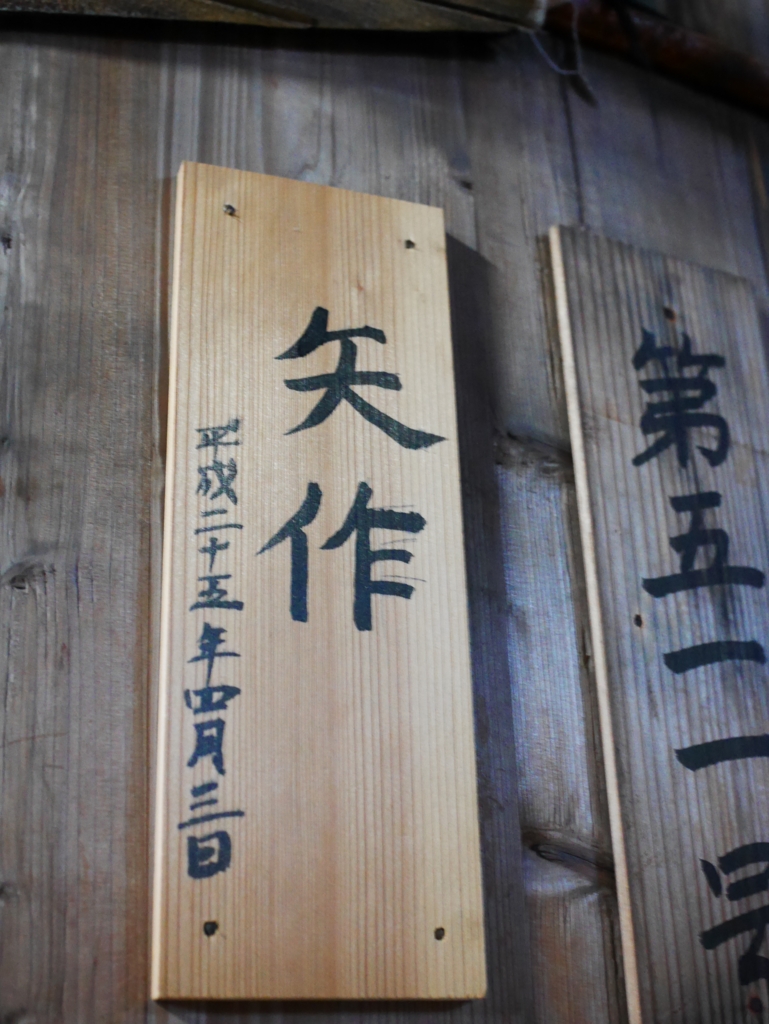 第五一一号
矢作
平成二十五年四月三日